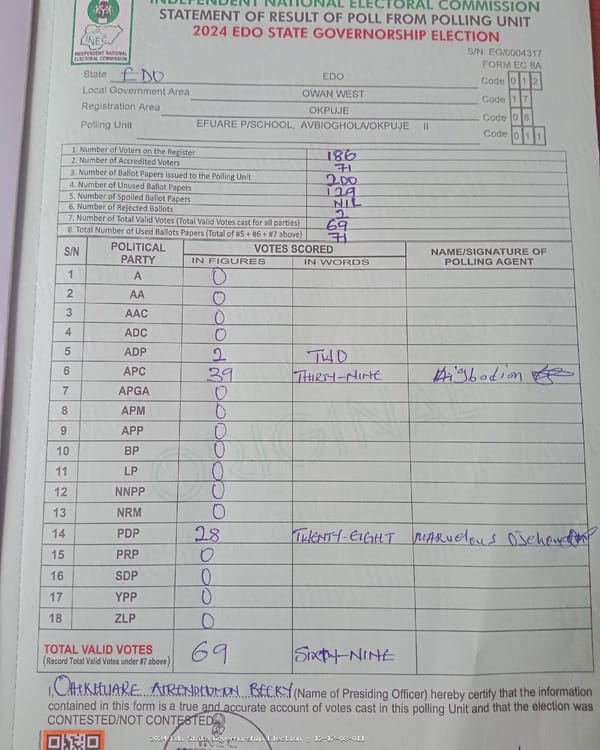 INDEPENDENT NATIONAL ELECTORAL COMMISSION
STATEMENT OF RESULT OF POLL FROM POLLING UNIT
2024 EDO STATE GOVERNORSHIP ELECTION
INEC
INDEPENDENT NATIONAL
ELECTORAL COMMISSION
S/N: EG/0004317
FORM EC 8A
State EDO EDO Code 0 1 2
Local Government Area OWAN WEST Code 1 7
Registration Area OKPUJE Code 0 8
Polling Unit EFUARE P/SCHOOL, AVBIOGHOLA/OKPUJE II Code 0 1 1
1. Number of Voters on the Register 186
2. Number of Accredited Voters 71
3. Number of Ballot Papers Issued to the Polling Unit 200
4. Number of Unused Ballot Papers 129
5. Number of Spoiled Ballot Papers NIL
6. Number of Rejected Ballots 2
7. Number of Total Valid Votes (Total Valid Votes cast for all parties) 69
8. Total Number of Used Ballots Papers (Total of #5 + #6 + #7 above) 71
S/N POLITICAL PARTY VOTES SCORED NAME/SIGNATURE OF POLLING AGENT
IN FIGURES IN WORDS
1 A 0
2 AA 0
3 AAC 0
4 ADC 0
5 ADP 2 TWO
6 APC 39 THIRTY-NINE
7 APGA 0
8 APM 0
9 APP 0
10 BP 0
11 LP 0
12 NNPP 0
13 NRM 0
14 PDP 28 TWENTY-EIGHT MARVELOUS
15 PRP 0
16 SDP 0
17 YPP 0
18 ZLP 0
ORIGINAL
TOTAL VALID VOTES 69 SIXTY-NINE
(Record Total Valid Votes under #7 above)
I, OHIKHUARE BECKY (Name of Presiding Officer) hereby certify that the information
contained in this form is a true and accurate account of votes cast in this polling Unit and that the election was
CONTESTED/NOT CONTESTED
INEC
2024 Edo State Governorship Election : 12-17-08-011